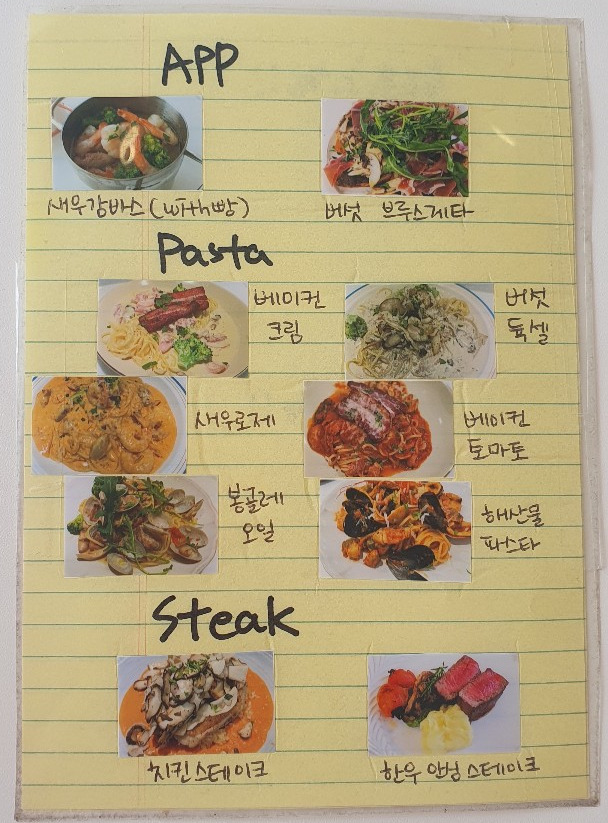 APP
새우감바스(with빵)
버섯 브루스게타
Pasta
베이컨
크림
버섯
듁셀
새우로제
베이컨
토마토
봉골레
오일
해산물
파스타
Steak
치킨스테이크
한우 안심 스테이크